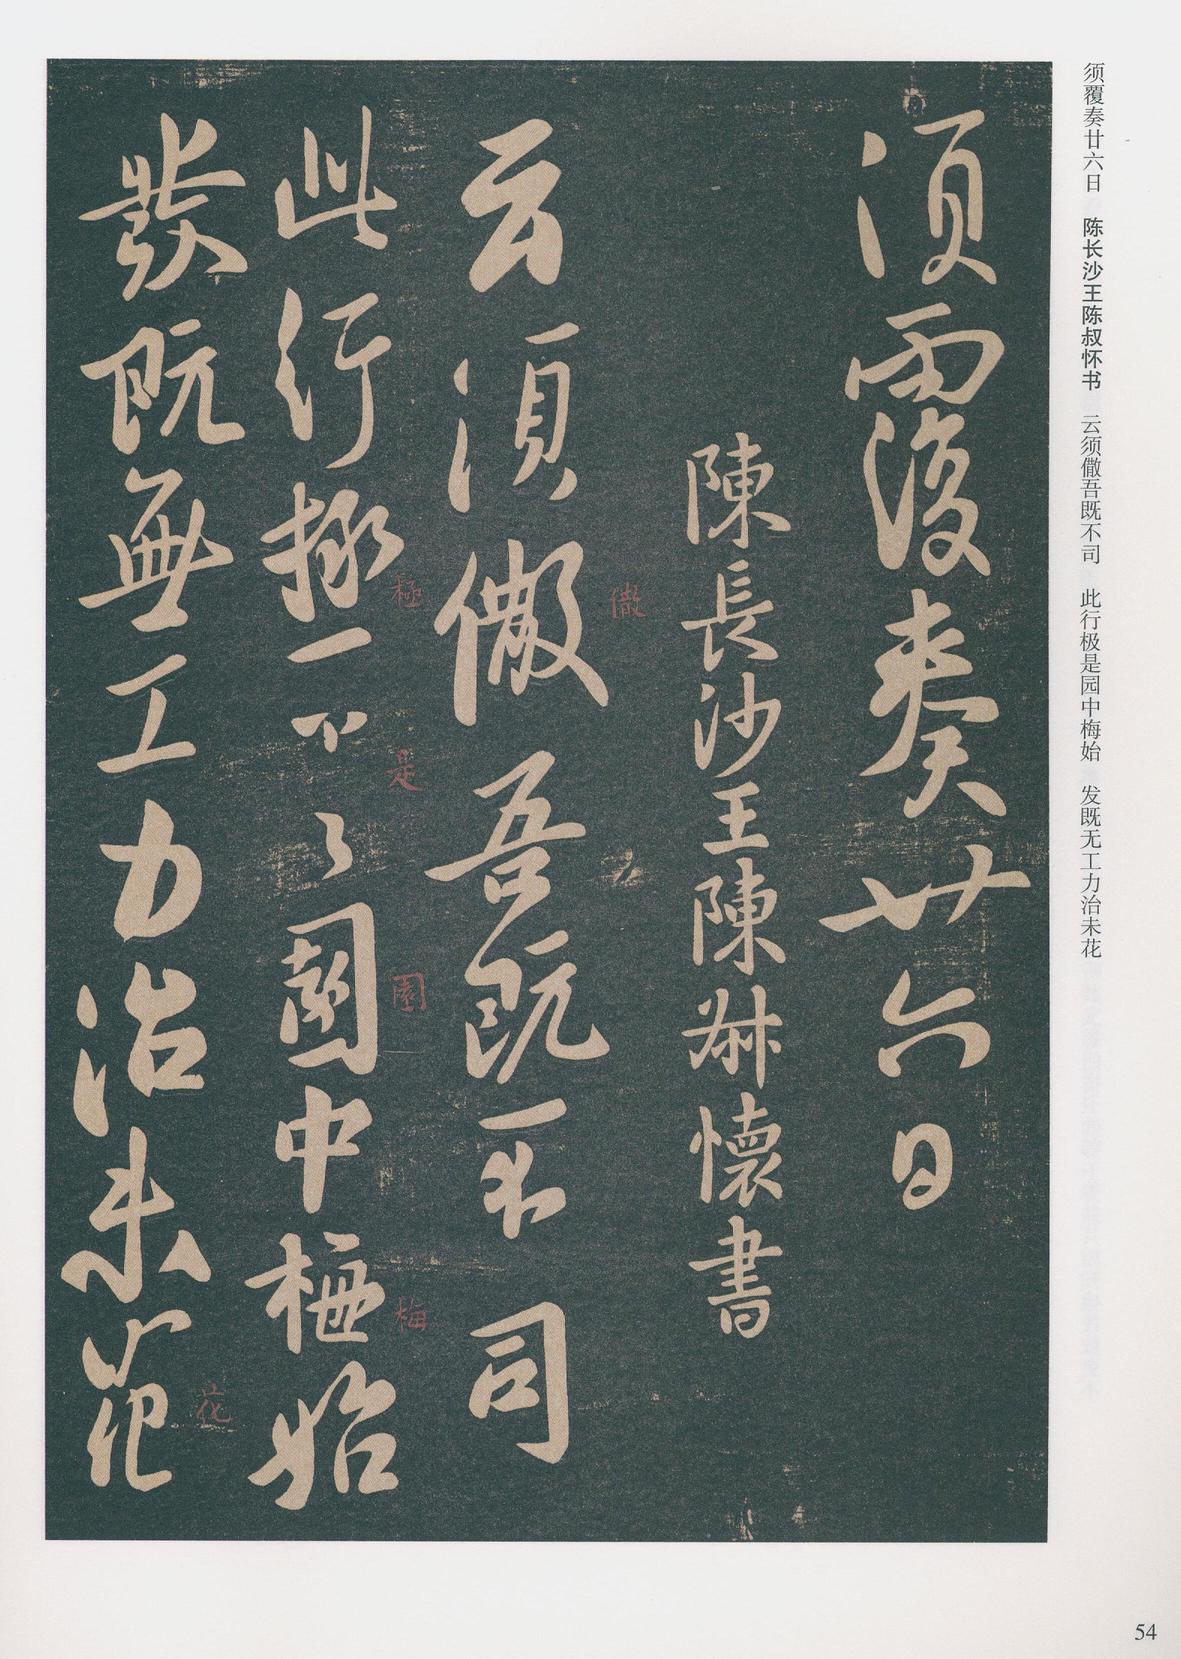 须覆奏廿六日　陈长沙王陈叔怀书　云须儆吾既不司　此行极是园中梅始　发既无工力治未花
須覆奏廿六日
陳長沙王陳叔懷書
云須儆吾既不司
儆
此行極是園中梅始
極
是
園
梅
發既無工力治未花
花
54